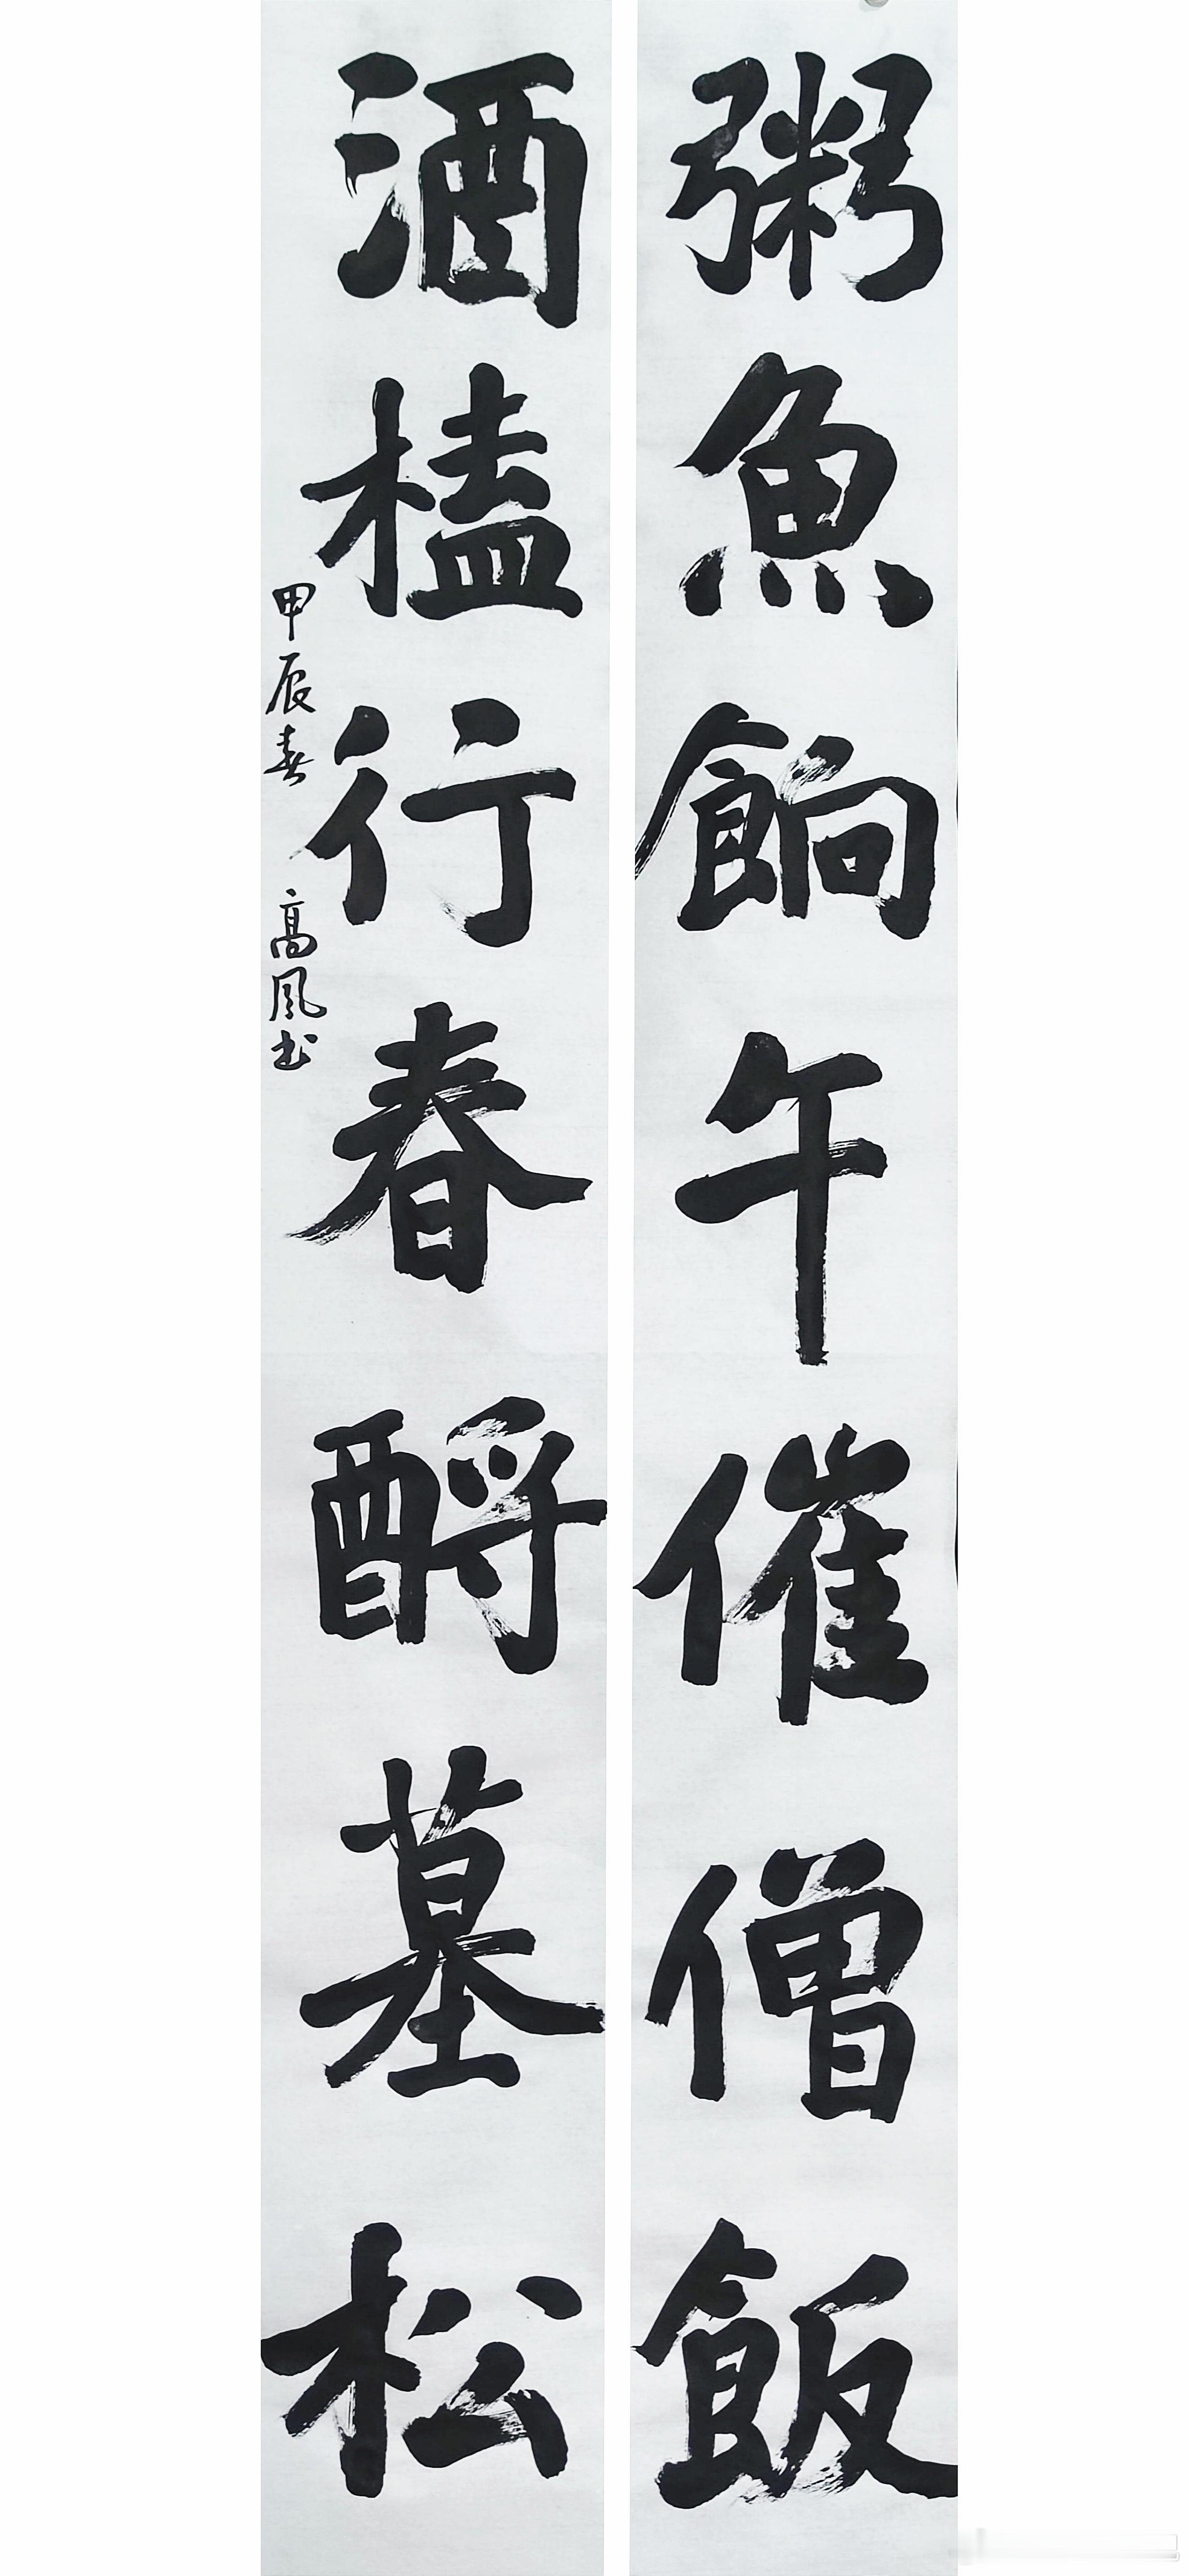 粥魚餉午催僧飯
酒榼行春酹墓松
甲辰春 高風書